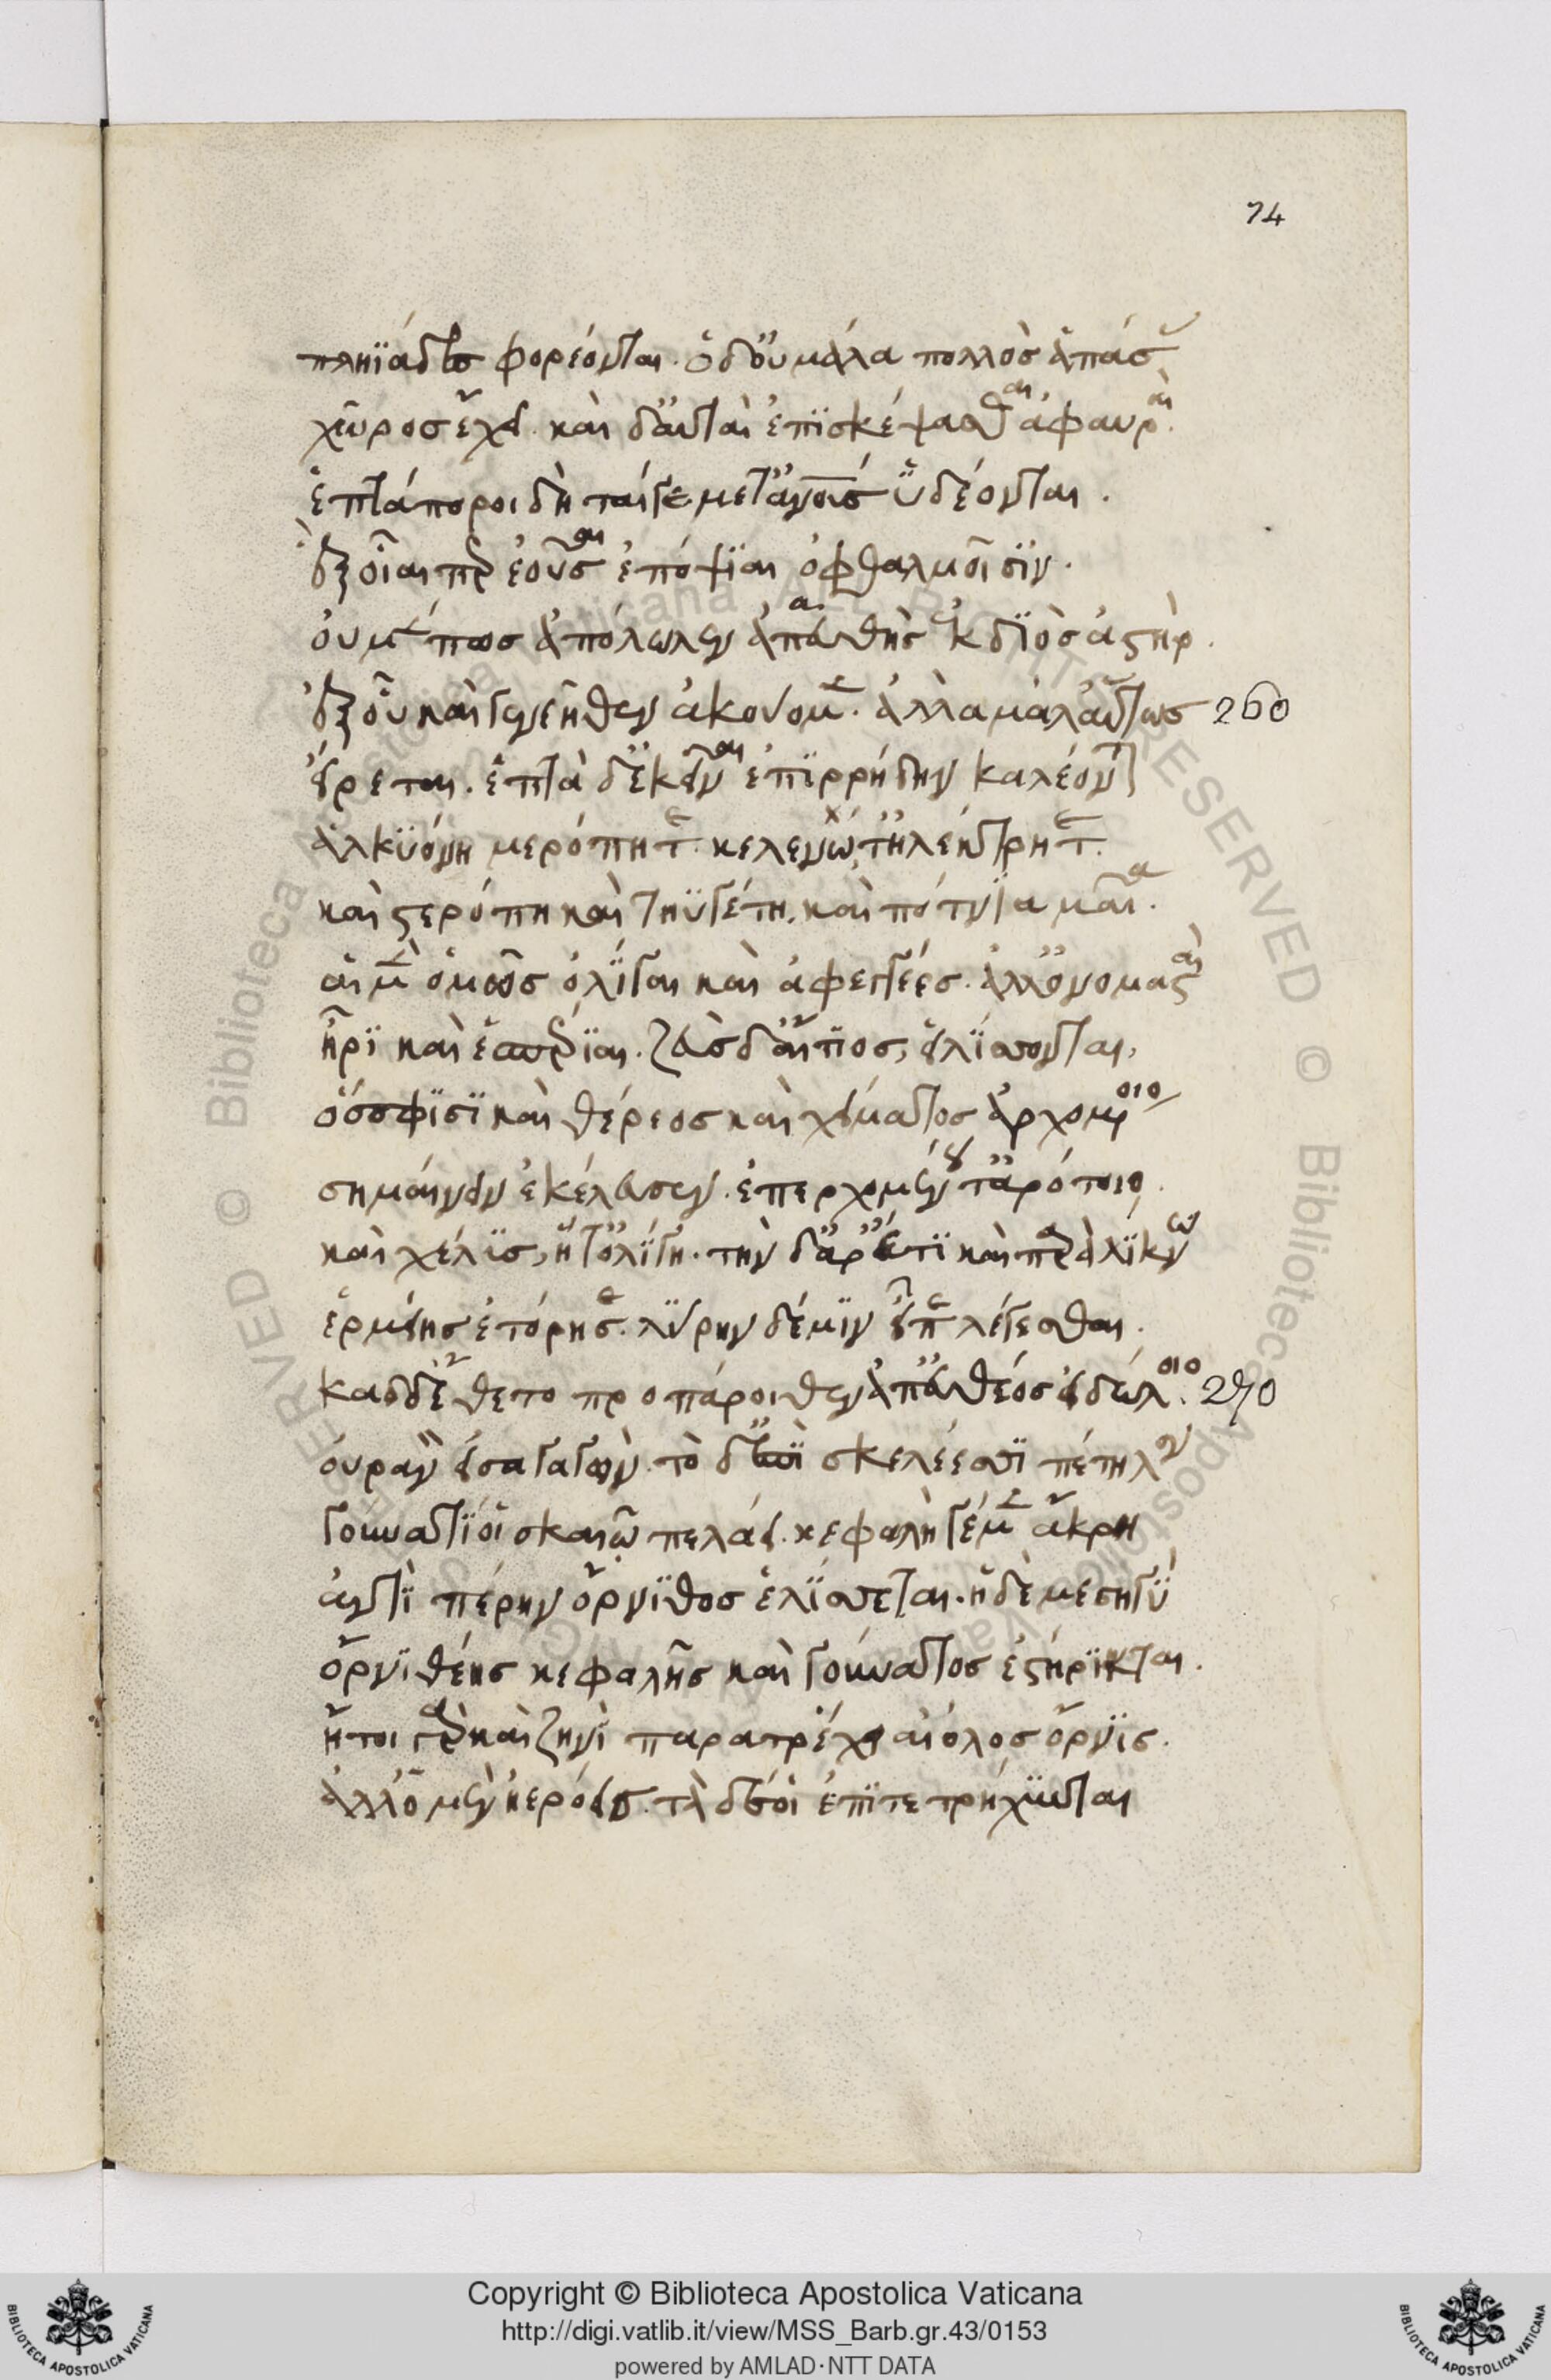 74
πληϊάδες φορέονται. ὁ δ' οὐ μάλα πολλὸς ἁπάσας
χῶρος ἔχει. καὶ δ' αὐταὶ ἐπισκέψασθαι ἀφαυραί.
ἑπτάποροι δὴ ταίγε μετ' ἀνθρώπους ὑδέονται.
ἓξ οἶαί περ ἐοῦσαι ἐπόψιαι ὀφθαλμοῖσιν.
οὐ μέν πως ἀπόλωλεν ἀπευθὴς ἐκ διὸς ἀστήρ.
ἐξ οὗ καὶ γενεῆθεν ἀκούομεν. ἀλλὰ μάλ' αὕτως 260
εἴρεται. ἑπτὰ δ' ἐκεῖναι ἐπιρρήδην καλέονται
ἀλκυόνη μερόπη τε. κελαινώ, τ' ἠλέκτρη τε.
καὶ στερόπη καὶ τηϋγέτη. καὶ πότνια μαῖα.
αἱ μὲν ὁμῶς ὀλίγαι καὶ ἀφεγγέες. ἀλλ' ὀνομασταὶ
ἦρι καὶ ἑσπέριαι. ζεὺς δ' αἴτιος, εἱλίσσονται,
ὅς σφισι καὶ θέρεος καὶ χείματος ἀρχομένοιο
σημαίνειν ἐκέλευσεν. ἐπερχομένου τ' ἀρότοιο.
καὶ χέλυς, ἥτ' ὀλίγη. τὴν δ' ἄρ' ἔτι καὶ παρὰ λίκνῳ
ἑρμείης ἐτόρησε. λύρην δέ μιν εἶπε λέγεσθαι.
καδδ' ἔθετο προπάροιθεν ἀπευθέος εἰδώλοιο. 270
οὐρανὸν εἰσαγαγών. τὸ δ' ἐπὶ σκελέεσσι πέτηλον
γούνατί οἱ σκαιῷ πελάει. κεφαλή γε μὲν ἄκρη
ἀντιπέρην ὄρνιθος ἑλίσσεται. ἡ δὲ μεσηγὺ
ὀρνιθέης κεφαλῆς καὶ γούνατος ἐστήρικται.
ἤτοι γὰρ καὶ ζηνὶ παρατρέχει αἰόλος ὄρνις.
ἀλλ' ὁ μὲν ἠερόεις. τὰ δέ οἱ ἐπιτετρήχυνται
Copyright © Biblioteca Apostolica Vaticana
http://digi.vatlib.it/view/MSS_Barb.gr.43/0153
powered by AMLAD·NTT DATA